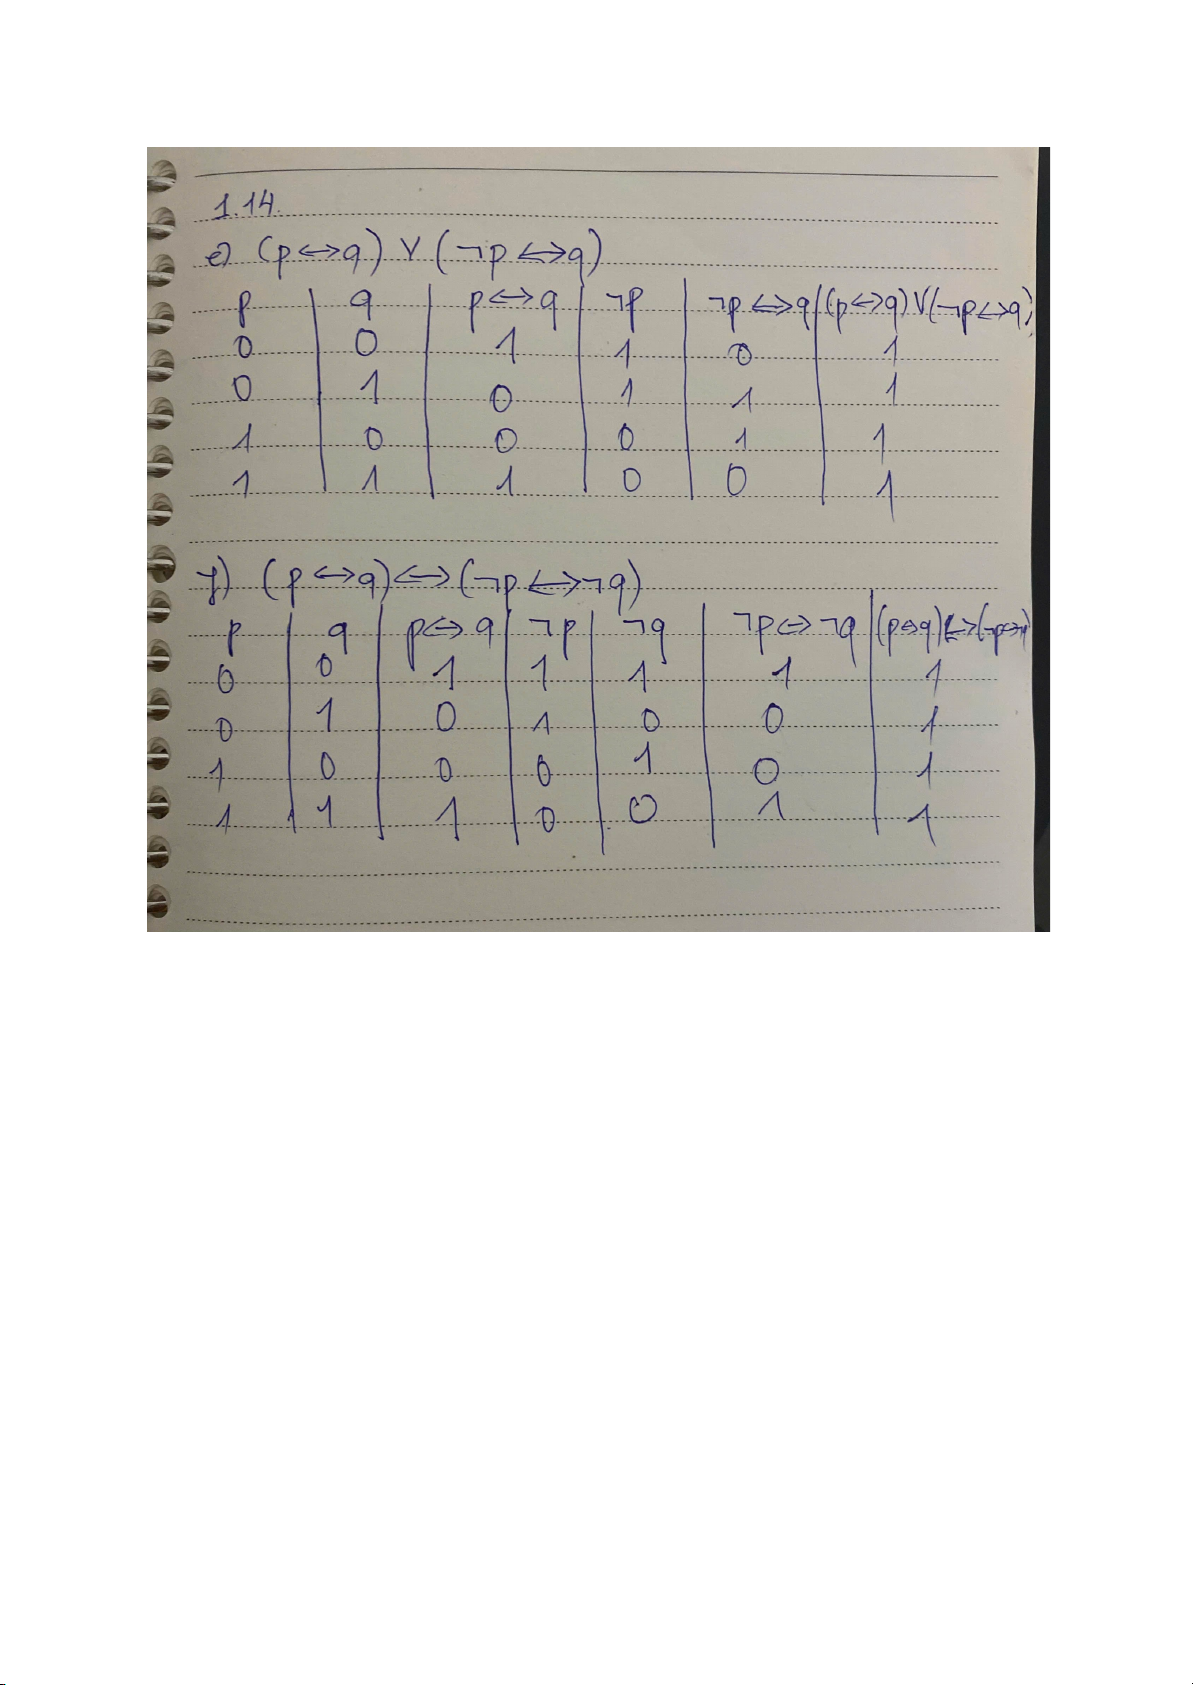 1.14.
e) (p↔q) ∨ (¬p↔q)
p | q | p↔q | ¬p | ¬p↔q | (p↔q)∨(¬p↔q)
0 | 0 | 1 | 1 | 0 | 1
0 | 1 | 0 | 1 | 1 | 1
1 | 0 | 0 | 0 | 1 | 1
1 | 1 | 1 | 0 | 0 | 1
f) (p↔q)↔(¬p↔¬q)
p | q | p↔q | ¬p | ¬q | ¬p↔¬q | (p↔q)↔(¬p↔¬q)
0 | 0 | 1 | 1 | 1 | 1 | 1
0 | 1 | 0 | 1 | 0 | 0 | 1
1 | 0 | 0 | 0 | 1 | 0 | 1
1 | 1 | 1 | 0 | 0 | 1 | 1